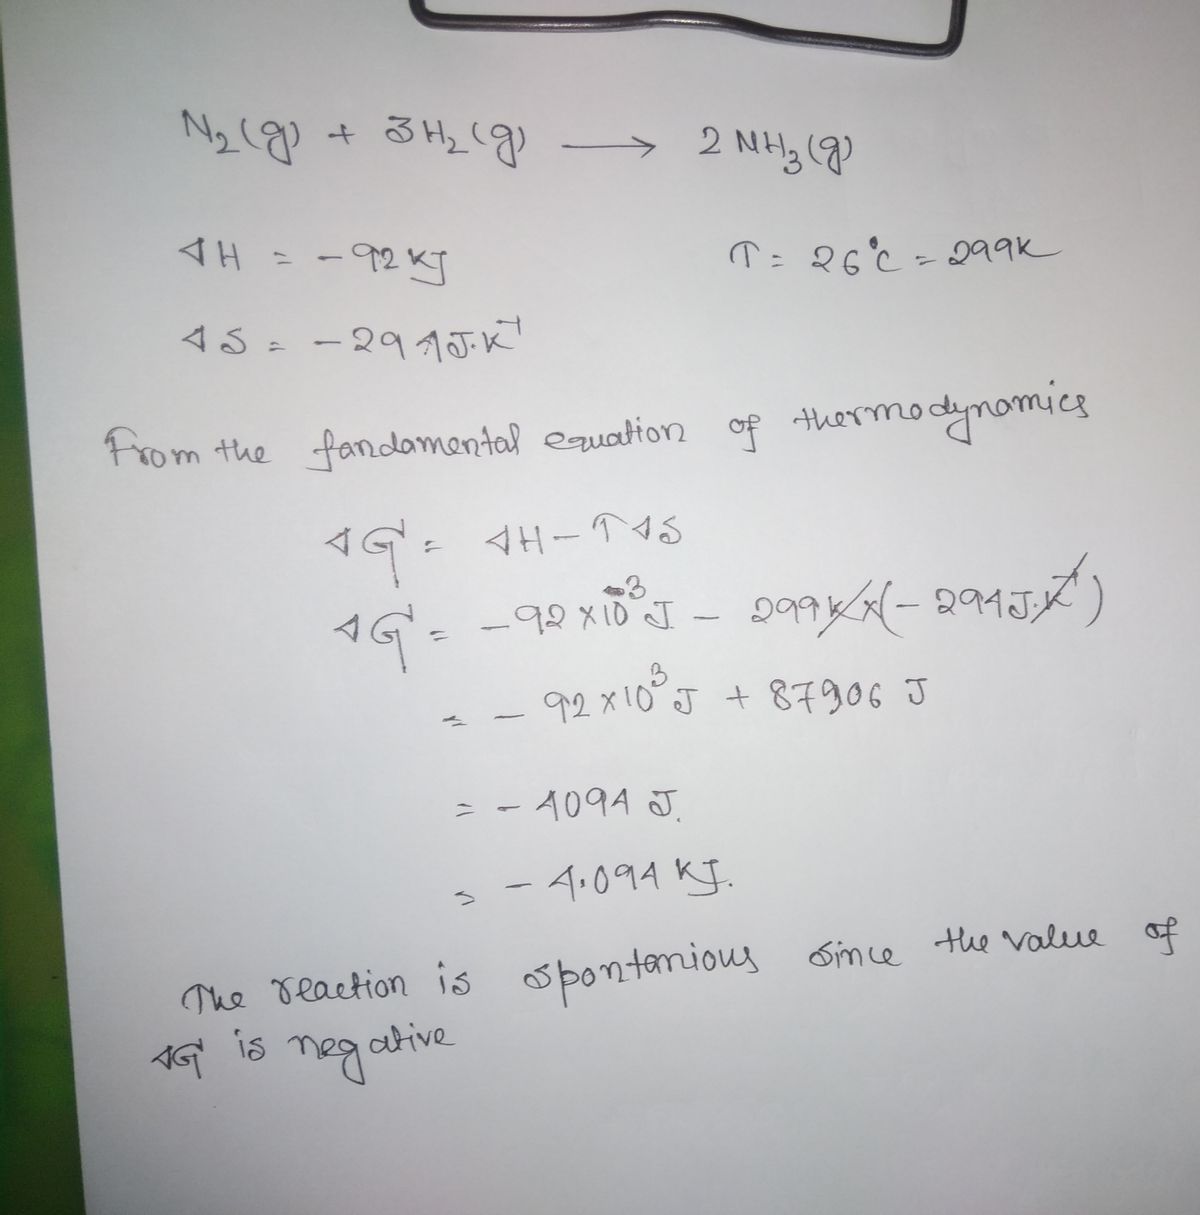 N₂(g) + 3H₂(g) ⟶ 2NH₃(g)
ΔH = -92 KJ T = 26°C = 299K
ΔS = -294 J.K⁻¹
From the fandamental equation of thermodynamics
ΔG = ΔH - TΔS
ΔG = -92 × 10³ J - 299K × (-294 J.K⁻¹)
= - 92 × 10³ J + 87906 J
= - 4094 J.
= - 4.094 KJ.
The reaction is spontanious since the value of
ΔG is negative